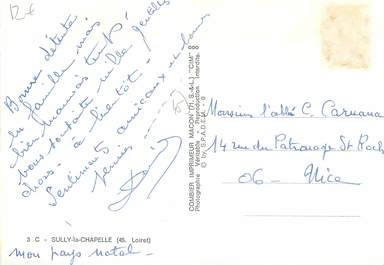 12 €
Bonne détente
en famille, mais
bien mauvais temps!
vous souhaite mille gentilles
choses - à bientôt -
Sentiments amicaux et bons
COMBIER IMPRIMEUR MACON (71. S.-&-L.) "CIM"
Photographie Véritable - Reproduction Interdite
© by S.P.A.D.E.M.
Monsieur l'abbé C. Caruana
14 rue du Patronage St Roch
06 - Nice
3 C - SULLY-la-CHAPELLE (45. Loiret)
Mon pays natal -